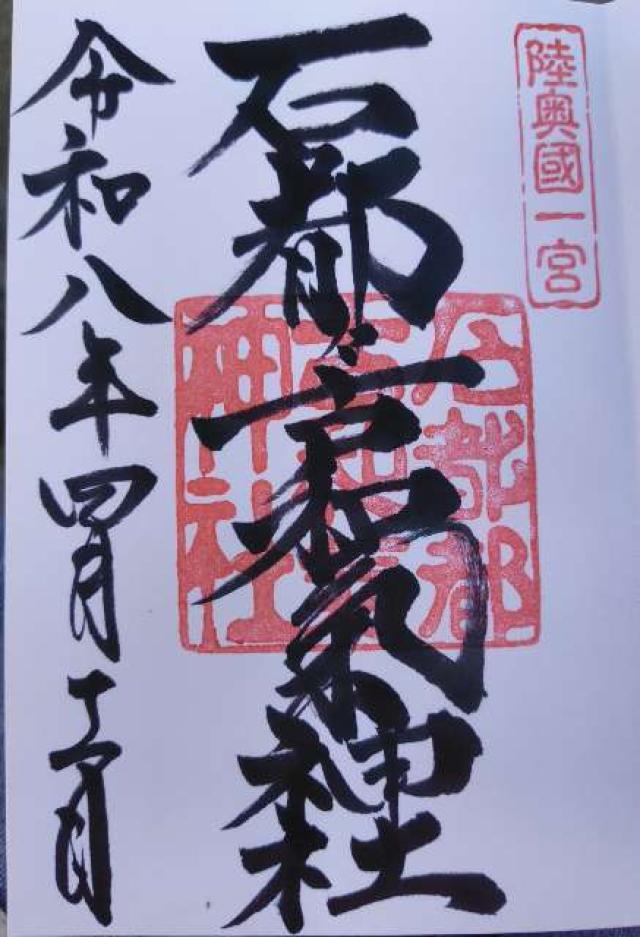 陸奥國一宮
石都々古和氣神社
石都都
古和氣
神社
令和八年四月